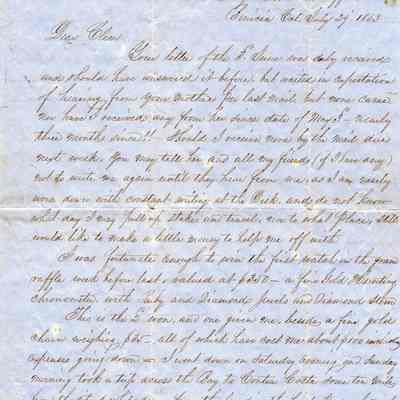 Benicia Cal July 29 1853
Dear Clem
Your letter of the 4 June was duly received
and should have answered it before but waited in expectation
of hearing from your mother per last mail. but none came
nor have I received any from her since date of May 1 - nearly
three months since!! - Should I receive none by the mail due
next week. You may tell her and all my friends (if I have any)
not to write me again until they hear from me, as I am nearly
worn down with constant writing at the Desk. and do not know
what day I may pull up stakes and travel. nor to what place, still
would like to make a little money to help me off with.
I was fortunate enough to win the first watch in the grand
raffle week before last - valued at $350 - a fine Gold Hunting
Chronometer with Ruby and Diamond Jewels and Diamond Stem
This is the 2 won, and one given me, beside a fine gold
chain weighing all of which has cost me about
expenses going down I went down on Saturday evening and Sunday
morning took a trip across the Bay to Contra Costa some ten miles